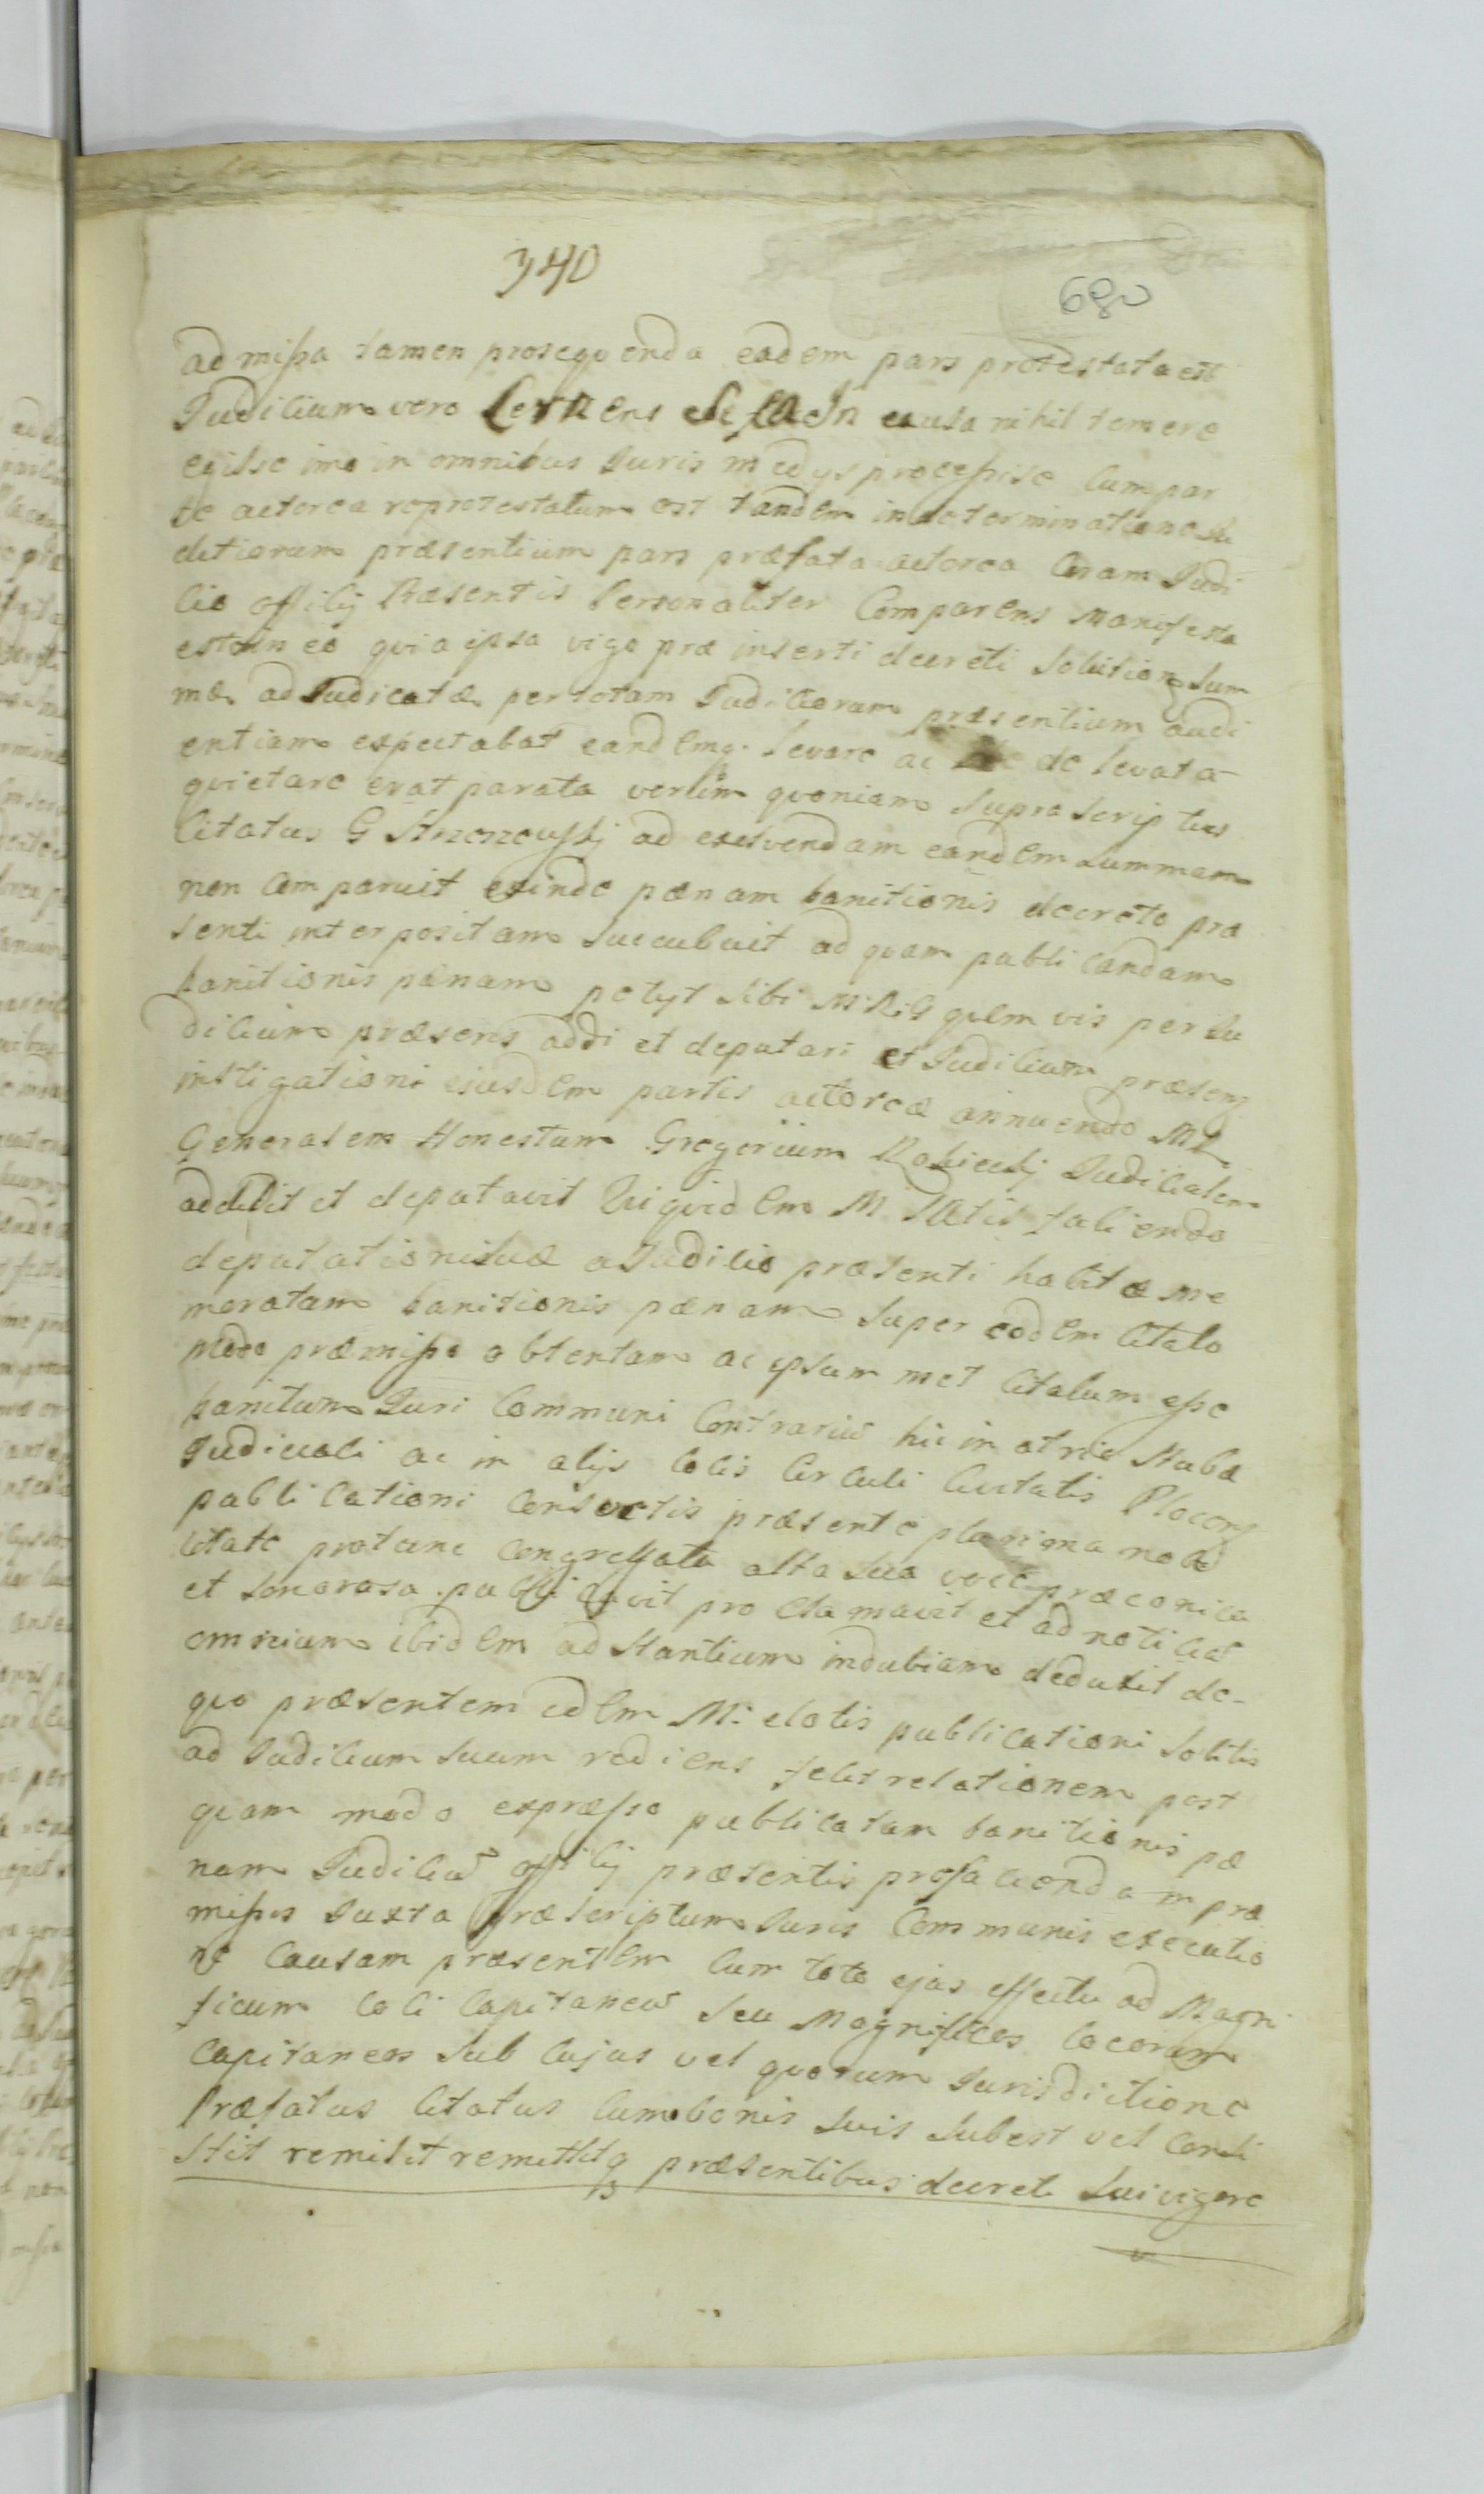 340
680
admissa tamen prosequenda eadem pars protestata est
Judicium vero Cernens se in causa nihil temere
egisse imo in omnibus Juris medys processise Cum par
te actorea reprotestatum est tandem in determinatione Ju
ditiorum præsentium pars præfata actorea Coram Judi
cio officij Præsentis Personaliter Comparens manifesta
est in eo quia ipsa vigo præ inserti decreti Solutionem Sum
mæ adJudicatæ per totam Judiciorum præsentium audi
entiam expectabat eandemq. levare ac de levata
quietare erat parata verum quoniam Supra Scriptus
Citatus G ad exolvendam eandem Summam
non Comparuit exinde pænam banitionis decreto præ
senti interpositam Succubuit ad quam publicandam
banitionis pænam petyt sibi M R G quem vis per Ju
dicium præsens addi et deputari et Judicium præsens
instigationi ejusdem partis actoreæ annuendo MR
Generalem Honestum Gregorium Judicialem
addidit et deputavit Qui quidem M Satis faciendo
deputationi suæ a Judicio præsenti habitæ me
moratam banitionis pænam Super eodem Citato
modo præmisso obtentam ac ipsum met Citatum esse
banitum Juri Communi Contrarium hic in atrio Stubæ
Judiciali ac in alijs locis Circuli Civitatis Plocens
publicationi Consvetis præsente plurima nobi
litate protunc Congregata alta Sua voce præconica
et sonorosa publicavit proclamavit et ad noticiam
omnium ibidem adstantium indubiam deduxit de
quo præsentem idem M: elatis publicationi Solitis
ad Judicium Suum rediens fecit relationem post
quam modo expræsso publicatam banitionis pæ
nam Judicium officij præsentis pro faciendam præ
missis Juxta præscriptum Juris Communis executio
ne Causam præsentem Cum toto ejus effectu ad Magni
ficum loci Capitaneum Seu Magnificos locorum
Capitaneos Sub Cujus vel quorum Jurisdictione
Præfatus Citatus Cum bonis Suis Subest vel Consi
stit remisit remittitq præsentibus decreti Sui vigore